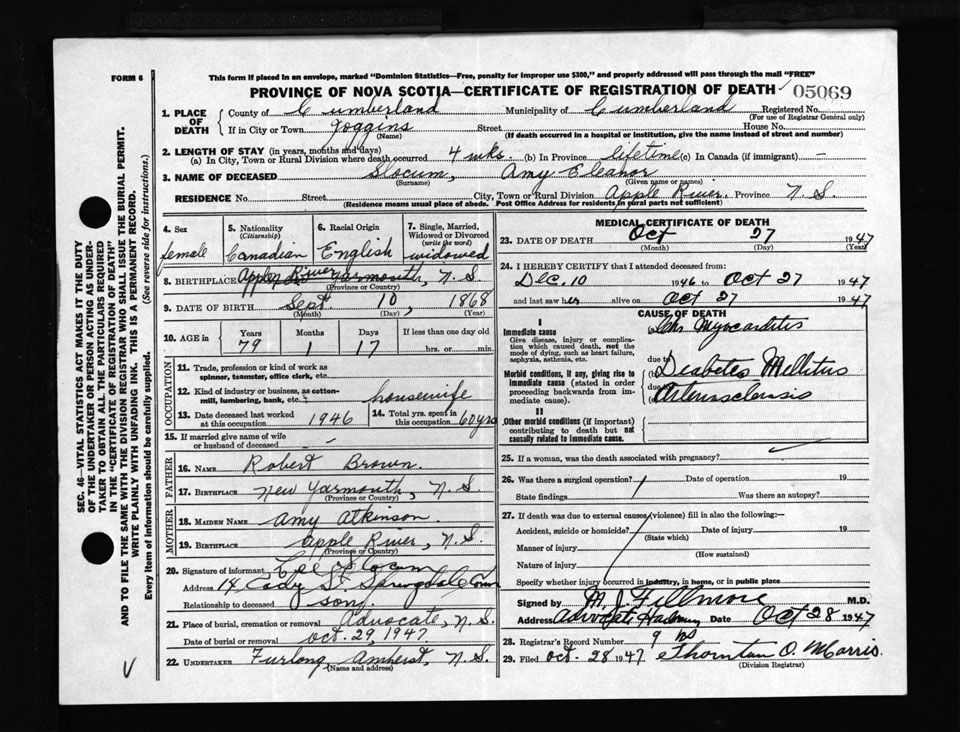 FORM 6
This form if placed in an envelope, marked "Dominion Statistics—Free, penalty for improper use $300," and properly addressed will pass through the mail "FREE"
PROVINCE OF NOVA SCOTIA—CERTIFICATE OF REGISTRATION OF DEATH 05069
1. PLACE OF DEATH
County of Cumberland Municipality of Cumberland Registered No.
(For use of Registrar General only)
If in City or Town Joggins Street House No.
(Name) (If death occurred in a hospital or institution, give the name instead of street and number)
2. LENGTH OF STAY (in years, months and days)
(a) In City, Town or Rural Division where death occurred 4 wks. (b) In Province lifetime (c) In Canada (if immigrant) —
3. NAME OF DECEASED Slocum, Amy Eleanor
(Surname) (Given name or names)
RESIDENCE No. Street City, Town or Rural Division Apple River, Province N.S.
(Residence means usual place of abode. Post Office Address for residents in rural parts not sufficient)
SEC. 46—VITAL STATISTICS ACT MAKES IT THE DUTY
OF THE UNDERTAKER OR PERSON ACTING AS UNDER-
TAKER TO OBTAIN ALL THE PARTICULARS REQUIRED
IN THE "CERTIFICATE OF REGISTRATION OF DEATH"
AND TO FILE THE SAME WITH THE DIVISION REGISTRAR WHO SHALL ISSUE THE BURIAL PERMIT.
WRITE PLAINLY WITH UNFADING INK. THIS IS A PERMANENT RECORD.
Every item of information should be carefully supplied. (See reverse side for instructions.)
4. Sex
female
5. Nationality
(Citizenship)
Canadian
6. Racial Origin
English
7. Single, Married,
Widowed or Divorced
(write the word)
widowed
8. BIRTHPLACE Apple River Yarmouth, N.S.
(Province or Country)
9. DATE OF BIRTH Sept 10, 1868
(Month) (Day) (Year)
10. AGE in Years Months Days If less than one day old
79 1 17 hrs. or min.
OCCUPATION
11. Trade, profession or kind of work as
spinner, teamster, office clerk, etc.
12. Kind of industry or business, as cotton-
mill, lumbering, bank, etc. housewife
13. Date deceased last worked
at this occupation 1946
14. Total yrs. spent in
this occupation 60 yrs
15. If married give name of wife
or husband of deceased —
FATHER
16. NAME Robert Brown.
17. BIRTHPLACE New Yarmouth, N.S.
(Province or Country)
MOTHER
18. MAIDEN NAME Amy Atkinson.
19. BIRTHPLACE Apple River, N.S.
(Province or Country)
20. Signature of informant Slocum
Address 14 St. Springdale Conn
Relationship to deceased son.
21. Place of burial, cremation or removal Advocate, N.S.
Date of burial or removal oct. 29, 1947
22. UNDERTAKER Furlong Amherst, N.S.
(Name and address)
MEDICAL CERTIFICATE OF DEATH
23. DATE OF DEATH Oct 27 1947
(Month) (Day) (Year)
24. I HEREBY CERTIFY that I attended deceased from:
Dec. 10 1946 to Oct 27 1947
and last saw her alive on Oct 27 1947
CAUSE OF DEATH
I
Immediate cause
Give disease, injury or complica-
tion which caused death, not the
mode of dying, such as heart failure,
asphyxia, asthenia, etc.
(a) Chr Myocarditis
due to
Morbid conditions, if any, giving rise to
immediate cause (stated in order
proceeding backwards from im-
mediate cause).
(b) Diabetes Mellitus
due to
Arteriosclerosis
II
Other morbid conditions (if important)
contributing to death but not
causally related to immediate cause.
25. If a woman, was the death associated with pregnancy?
26. Was there a surgical operation? Date of operation 19
State findings Was there an autopsy?
27. If death was due to external causes (violence) fill in also the following:—
Accident, suicide or homicide? Date of injury 19
(State which)
Manner of injury
(How sustained)
Nature of injury
Specify whether injury occurred in industry, in home, or in public place
Signed by M. J. Fillmore M.D.
Address Advocate Harbour Date Oct 28 1947
28. Registrar's Record Number 9
29. Filed oct. 28 1947 Thornton O. Morris.
(Division Registrar)